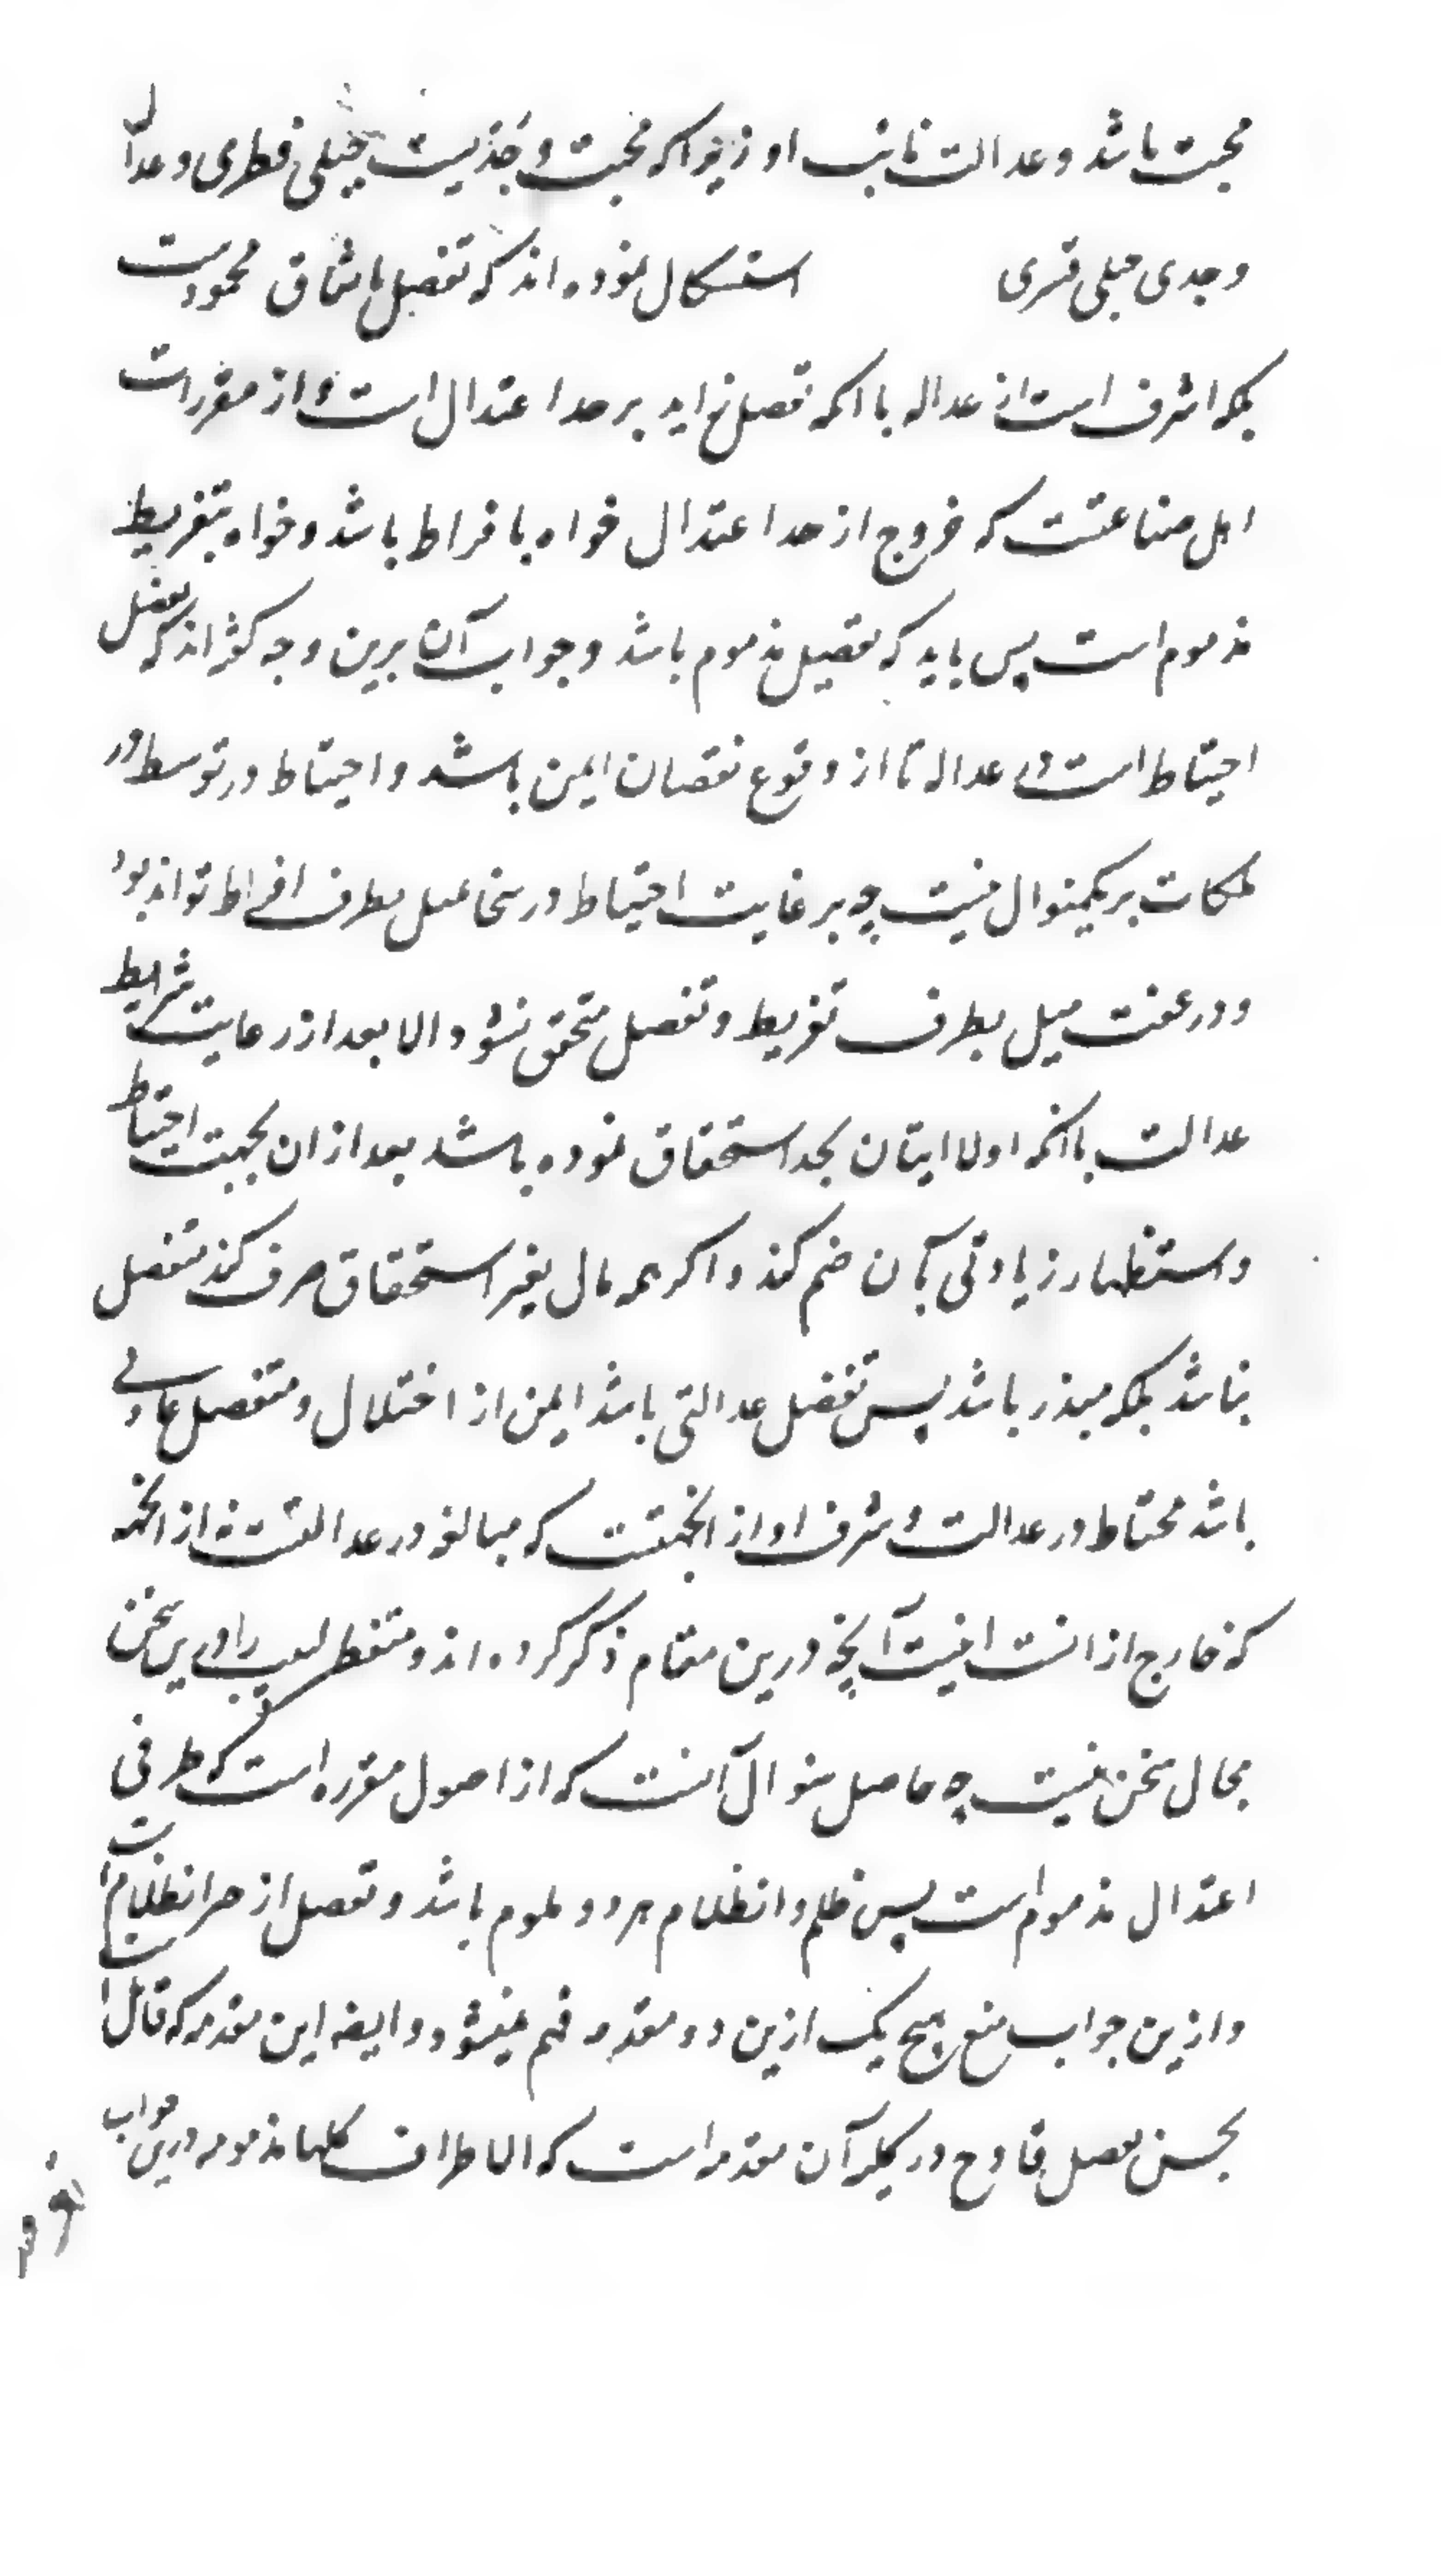 محبت باشد و عدالت نایب او زیرا که محبت وحدتیست جبلی فطری و عدالت
وحدی جبلی قسری استشکال نموده‌اند که تفضل باتفاق محمودست
بلکه اشرف است از عداله با آنکه تفضل زاید بر حد اعتدال است و از مقررات
اهل صناعتست که خروج از حد اعتدال خواه بافراط باشد و خواه بتفریط
مذموم است پس باید که تفضل مذموم باشد و جواب آن برین وجه گفته‌اند که تفضل
احتیاط است در عداله تا از وقوع نقصان ایمن باشد و احتیاط در توسط در
ملکات بر یکمنوال نیست چه بر غایت احتیاط در سخا میل بطرف افراط تواند بود
و در عفت میل بطرف تفریط و تفضل متحقق نشود الا بعد از رعایت شرایط
عدالت با آنکه اولا ایتان بحد استحقاق نموده باشد بعد از ان بجهت احتیاط
و استظهار زیادتی بآن ضم کند و اگر همه مال بغیر استحقاق صرف کند متفضل
نباشد بلکه مبذر باشد پس تفضل عدالتی باشد ایمن از اختلال و متفضل عادلی
باشد محتاط در عدالت و شرف او از انجهتست که مبالغه در عدالتست نه از انجهه
که خارج از انست اینست آنچه درین مقام ذکر کرده‌اند و متفطن لبیب را درین سخن
مجال سخن نیست چه حاصل سؤال آنست که از اصول مقرره است که طرفی
اعتدال مذموم است پس ظلم و انظلام هر دو ملوم باشد و تفضل از حیز انظلام است
و ازین جواب منع هیچ یک ازین دو مقدمه فهم نمیشود و ایضا این مقدمه که قائل است
بحسن تفضل قادح در کلیه آن مقدمه است که الاطراف کلها مذمومه درین جواب